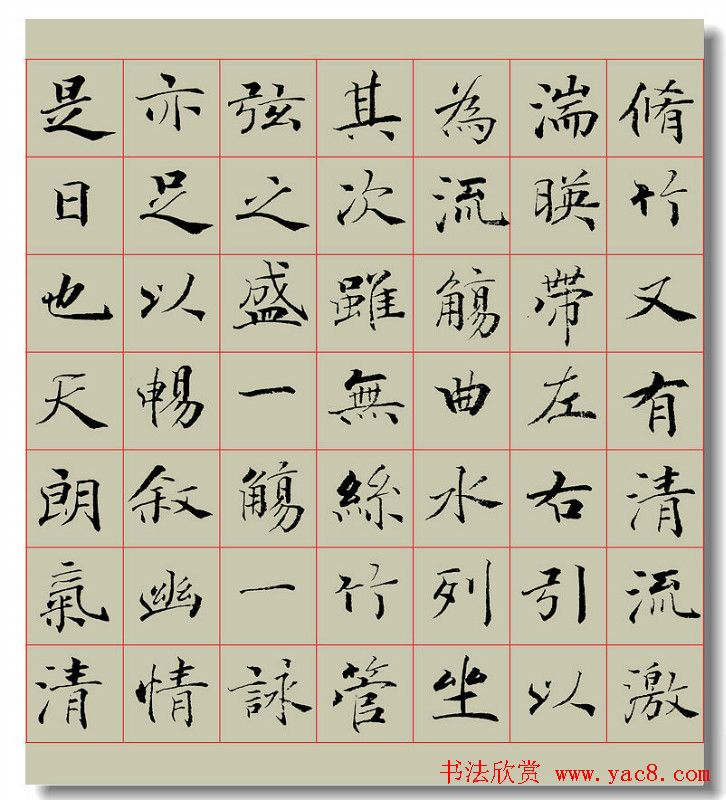 脩竹又有清流激
湍暎帶左右引以
為流觴曲水列坐
其次雖無絲竹管
弦之盛一觴一詠
亦足以暢叙幽情
是日也天朗氣清
书法欣赏 www.yac8.com